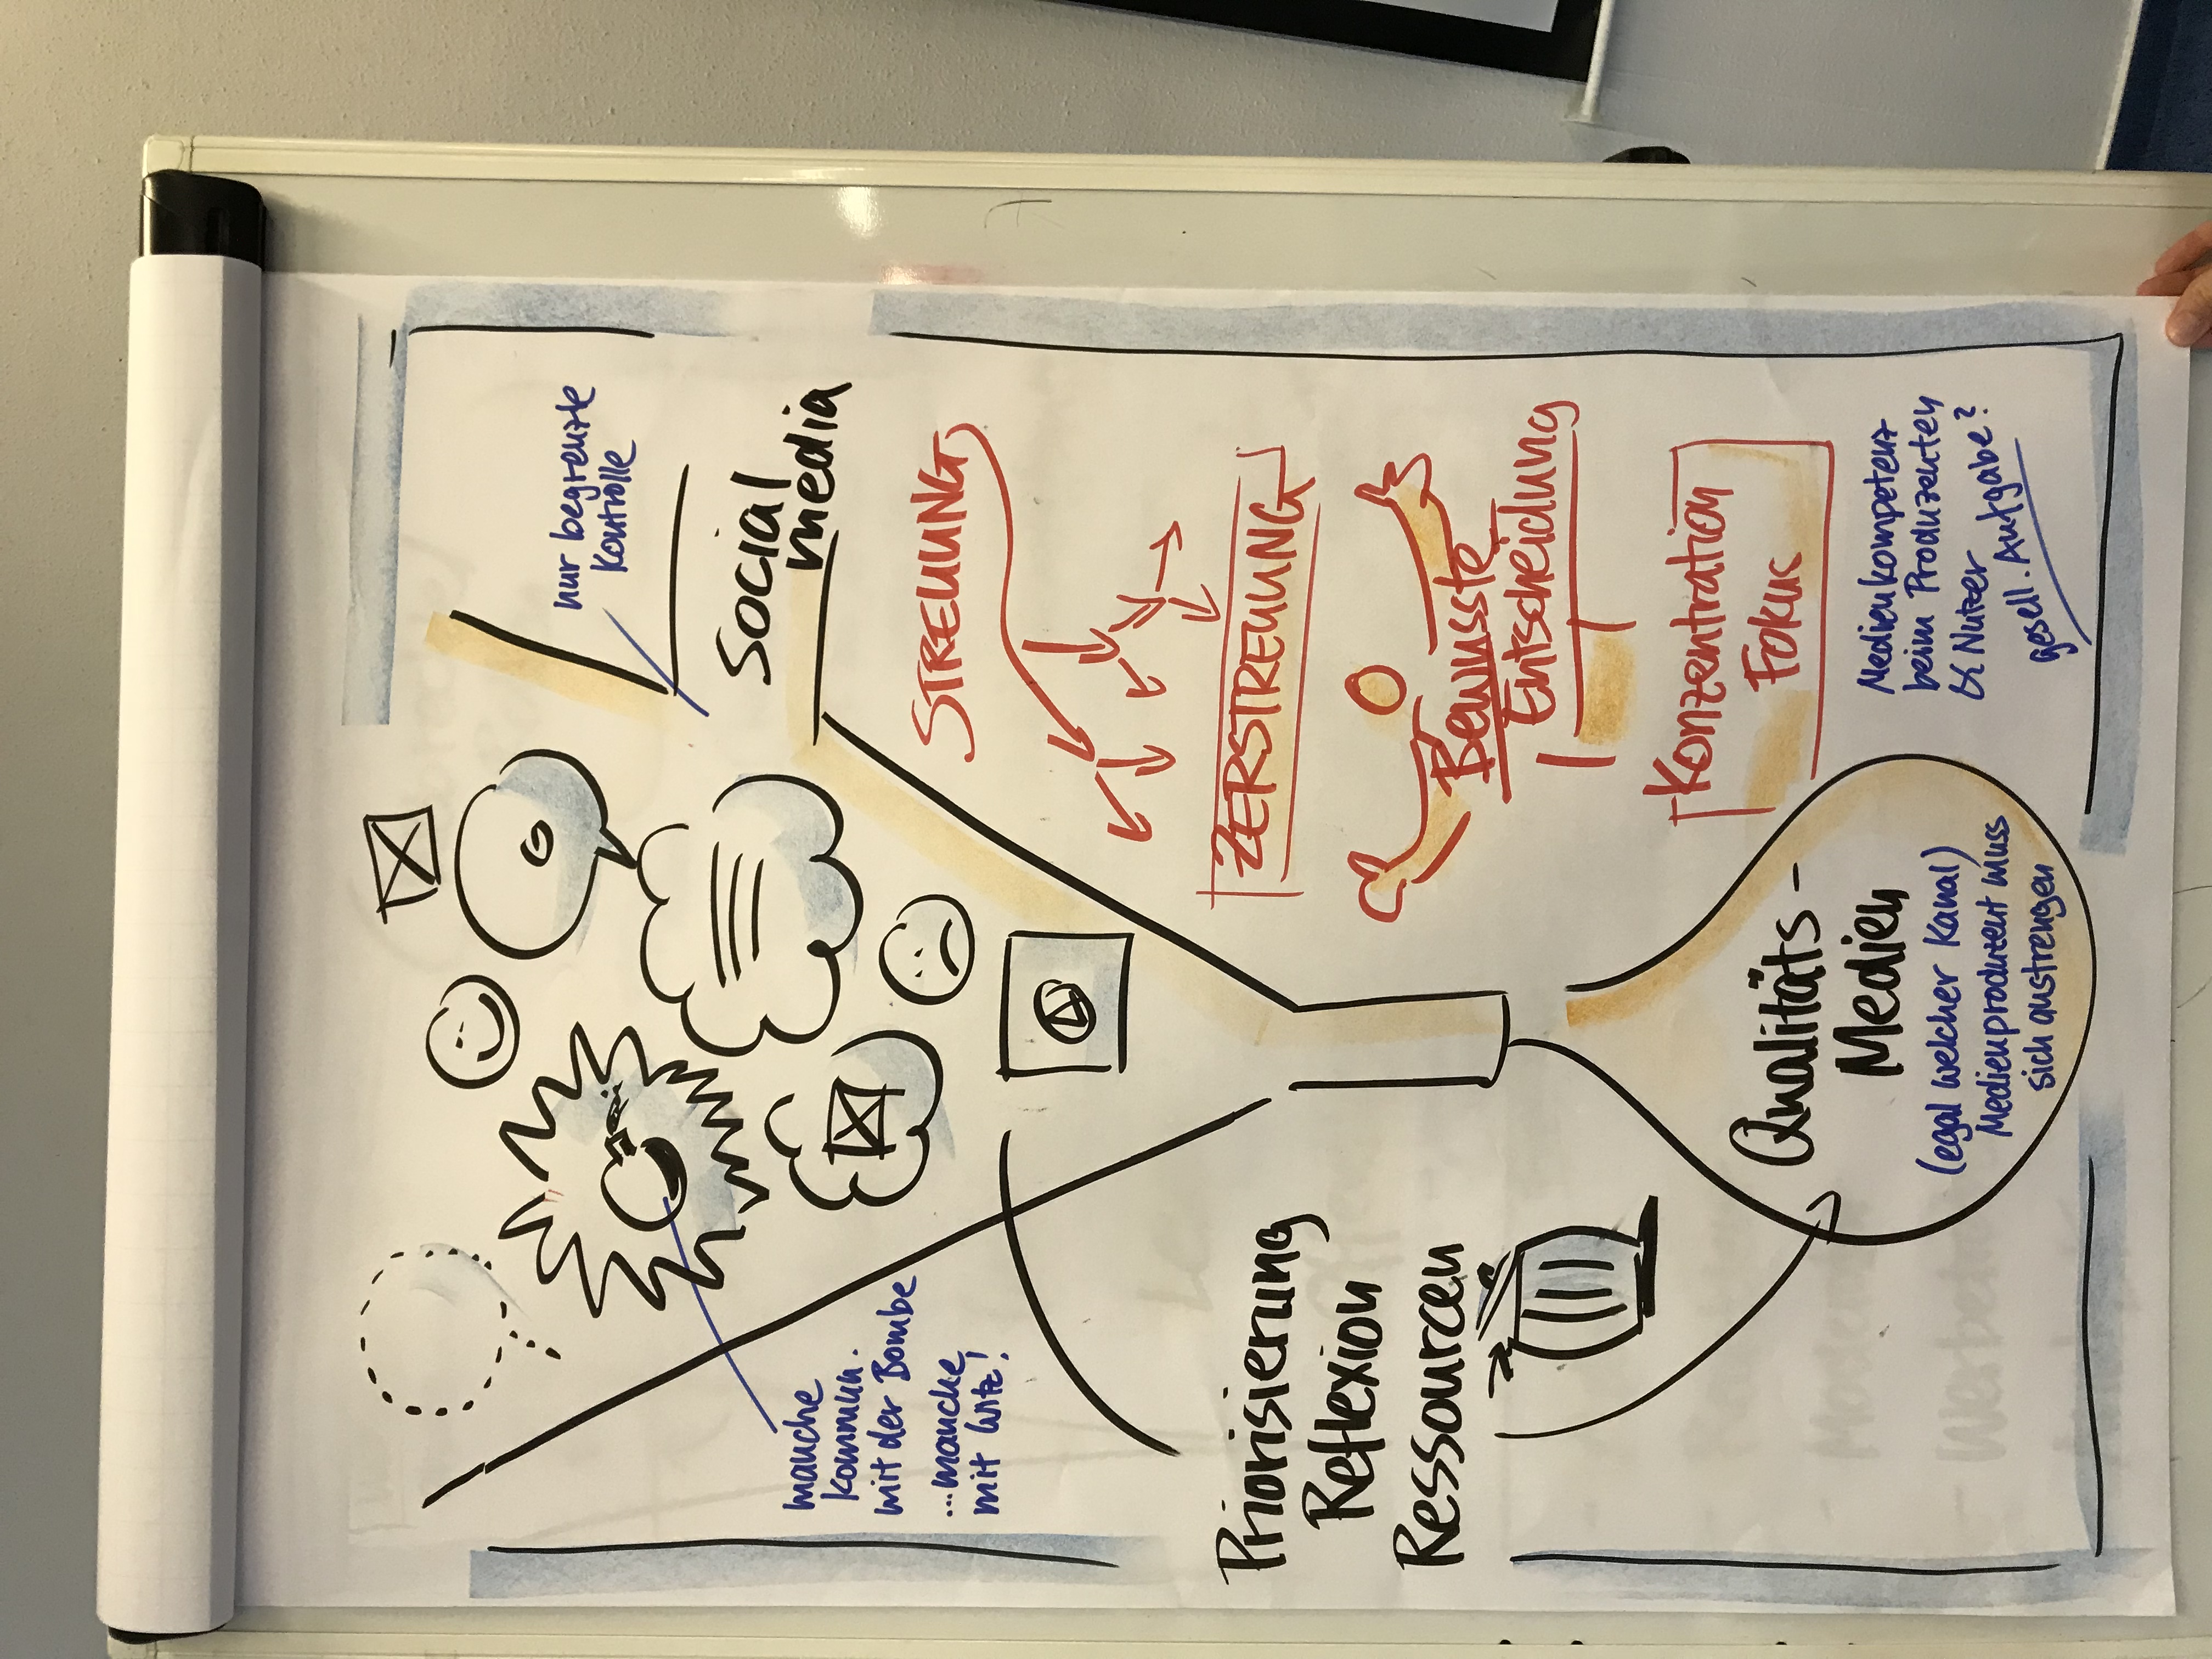 nur begrenzte
Kontrolle
Social
media
manche
kommun.
mit der Bombe
...manche
mit Witz!
STREUUNG
ZERSTREUUNG
Bewusste
Entscheidung
Konzentration
Fokus
Priorisierung
Reflexion
Ressourcen
Medienkompetenz
beim Produzenten
& Nutzer
gesell. Aufgabe?
Qualitäts-
Medien
(egal welcher Kanal)
Medienproduzent muss
sich anstrengen